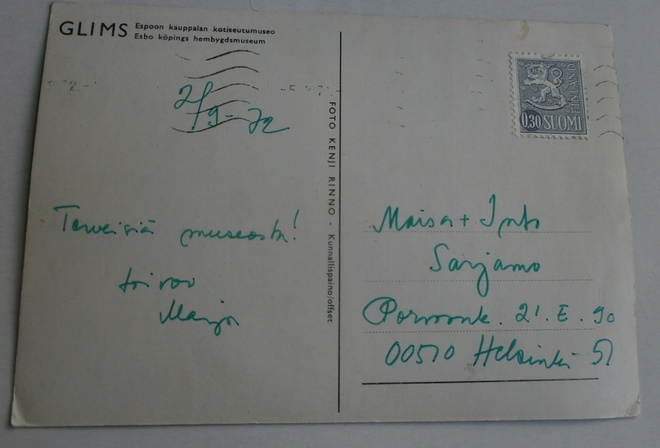 GLIMS Espoon kauppalan kotiseutumuseo
Esbo köpings hembygdsmuseum
2/9-72
Terveisiä museosta!
toivoo
Marja
FOTO KENJI RINNO - Kunnallispaino/offset
0,30 SUOMI
Maisa +
Sarjamo
Porvoonk. 21. E. 90
00510 Helsinki 51